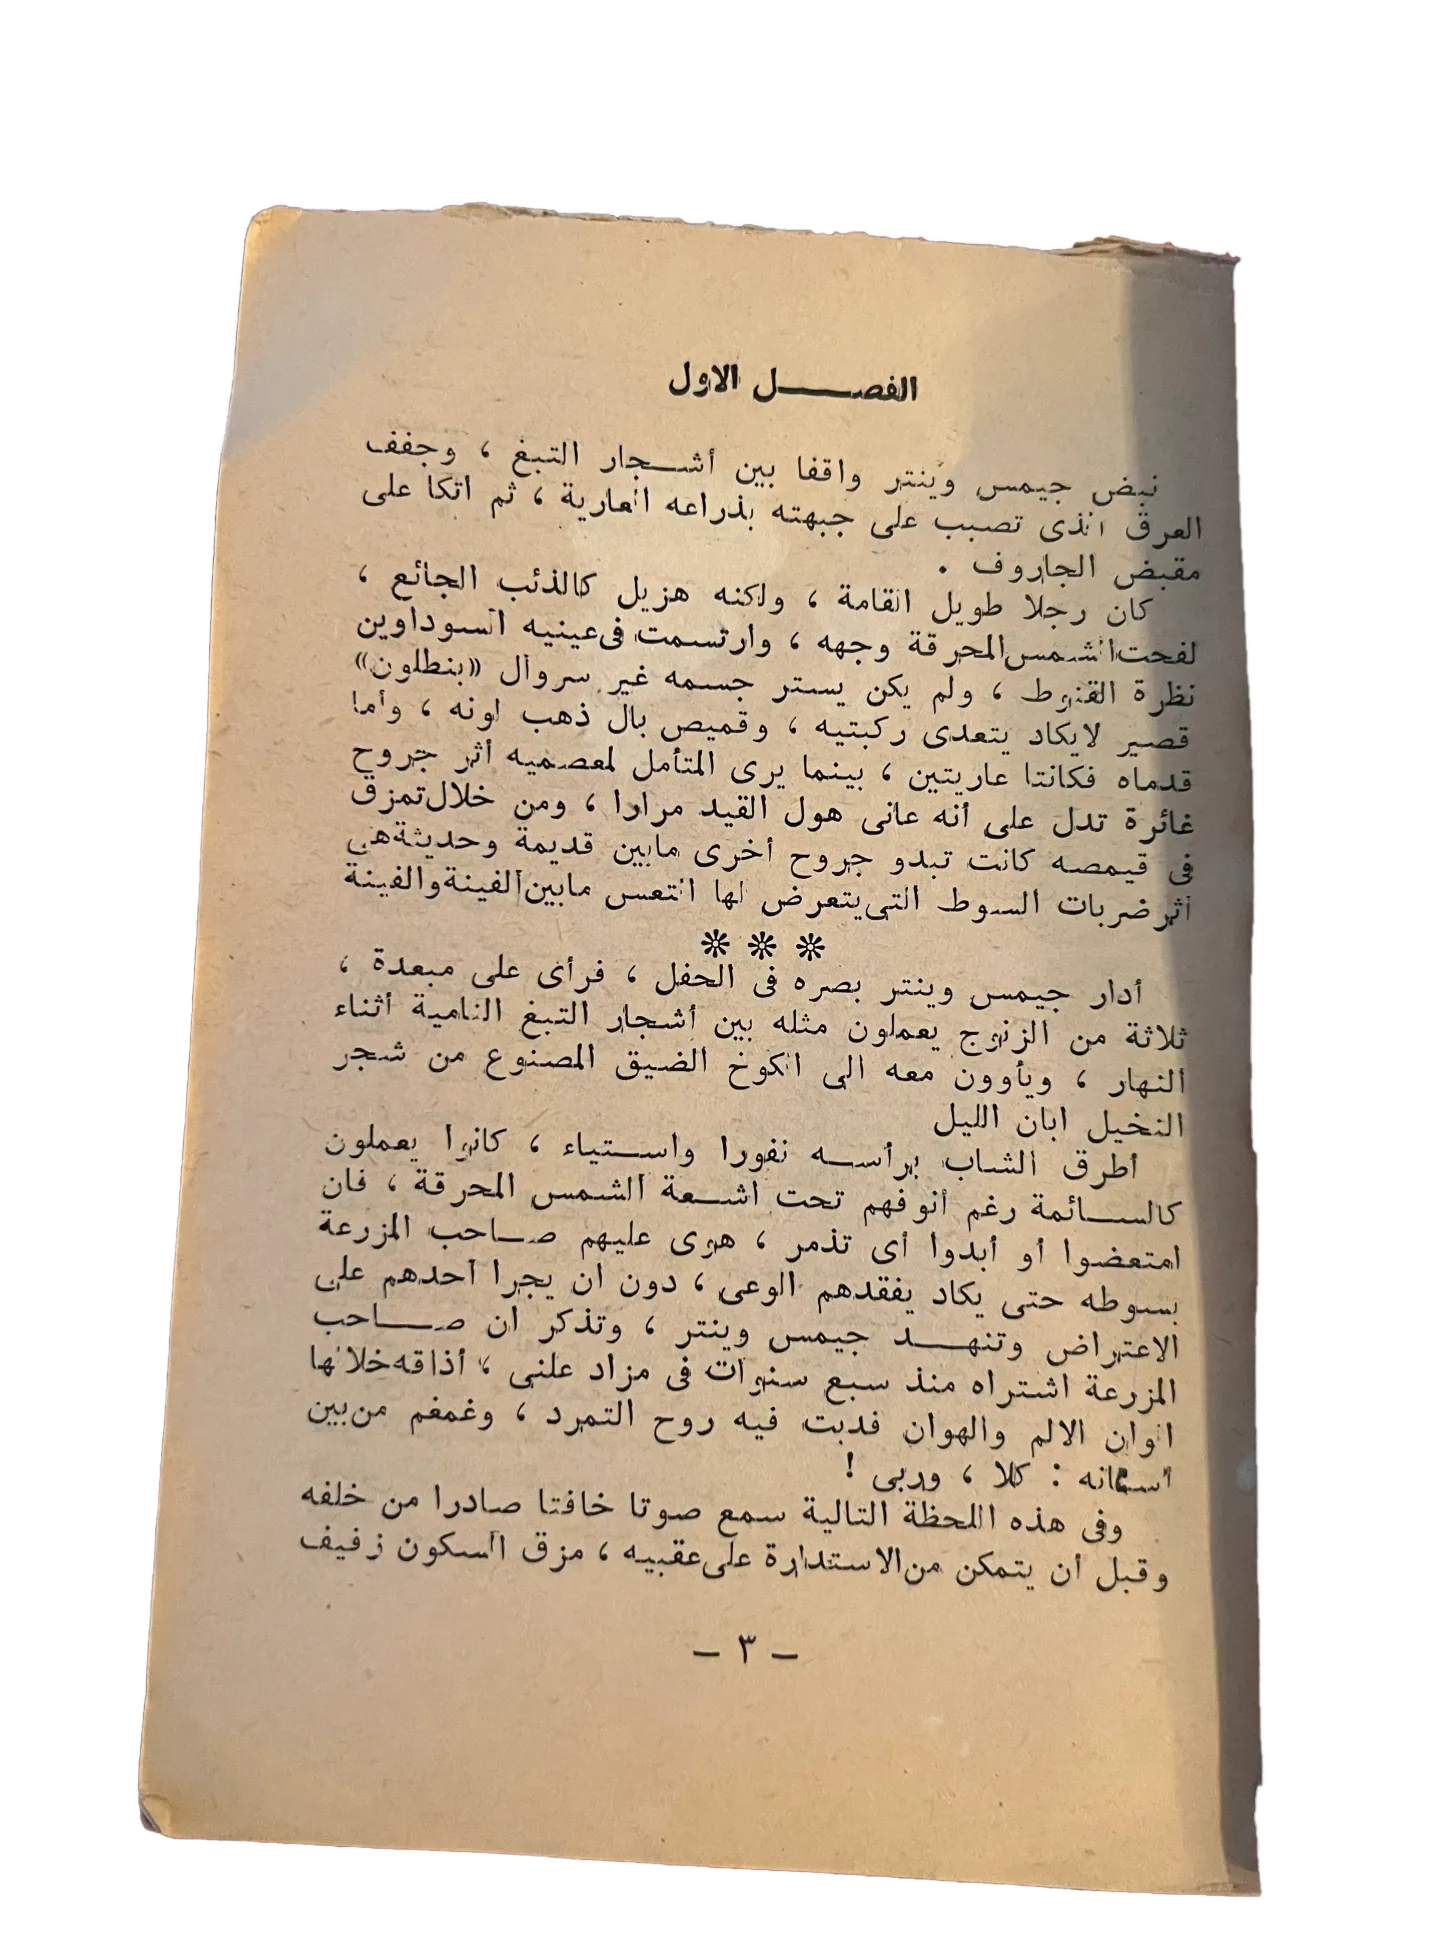 الفصل الاول
نبض جيمس وينتر واقفا بين أشجار التبغ ، وجفف
العرق الذى تصبب على جبهته بذراعه العارية ، ثم اتكا على
مقبض الجاروف .
كان رجلا طويل القامة ، ولكنه هزيل كالذئب الجائع ،
لفحت الشمس المحرقة وجهه ، وارتسمت فى عينيه السوداوين
نظرة القنوط ، ولم يكن يستر جسمه غير سروال «بنطلون»
قصير لايكاد يتعدى ركبتيه ، وقميص بال ذهب لونه ، وأما
قدماه فكانتا عاريتين ، بينما يرى المتأمل لمعصميه أثر جروح
غائرة تدل على أنه عانى هول القيد مرارا ، ومن خلال تمزق
فى قيمصه كانت تبدو جروح أخرى مابين قديمة وحديثة هى
أثر ضربات السوط التى يتعرض لها التعس مابين الفينة والفينة
❊ ❊ ❊
أدار جيمس وينتر بصره فى الحفل ، فرأى على مبعدة ،
ثلاثة من الزنوج يعملون مثله بين أشجار التبغ النامية أثناء
النهار ، ويأوون معه الى الكوخ الضيق المصنوع من شجر
النخيل ابان الليل
أطرق الشاب برأسه نفورا واستياء ، كانوا يعملون
كالسائمة رغم أنوفهم تحت اشعة الشمس المحرقة ، فان
امتعضوا أو أبدوا أى تذمر ، هوى عليهم صاحب المزرعة
بسوطه حتى يكاد يفقدهم الوعى ، دون ان يجرا أحدهم على
الاعتراض وتنهد جيمس وينتر ، وتذكر ان صاحب
المزرعة اشتراه منذ سبع سنوات فى مزاد علنى ، أذاقه خلالها
الوان الالم والهوان فدبت فيه روح التمرد ، وغمغم من بين
أسنانه : كلا ، وربى !
وفى هذه اللحظة التالية سمع صوتا خافتا صادرا من خلفه
وقبل أن يتمكن من الاستدارة على عقبيه ، مزق السكون زفيف
– ٣ –